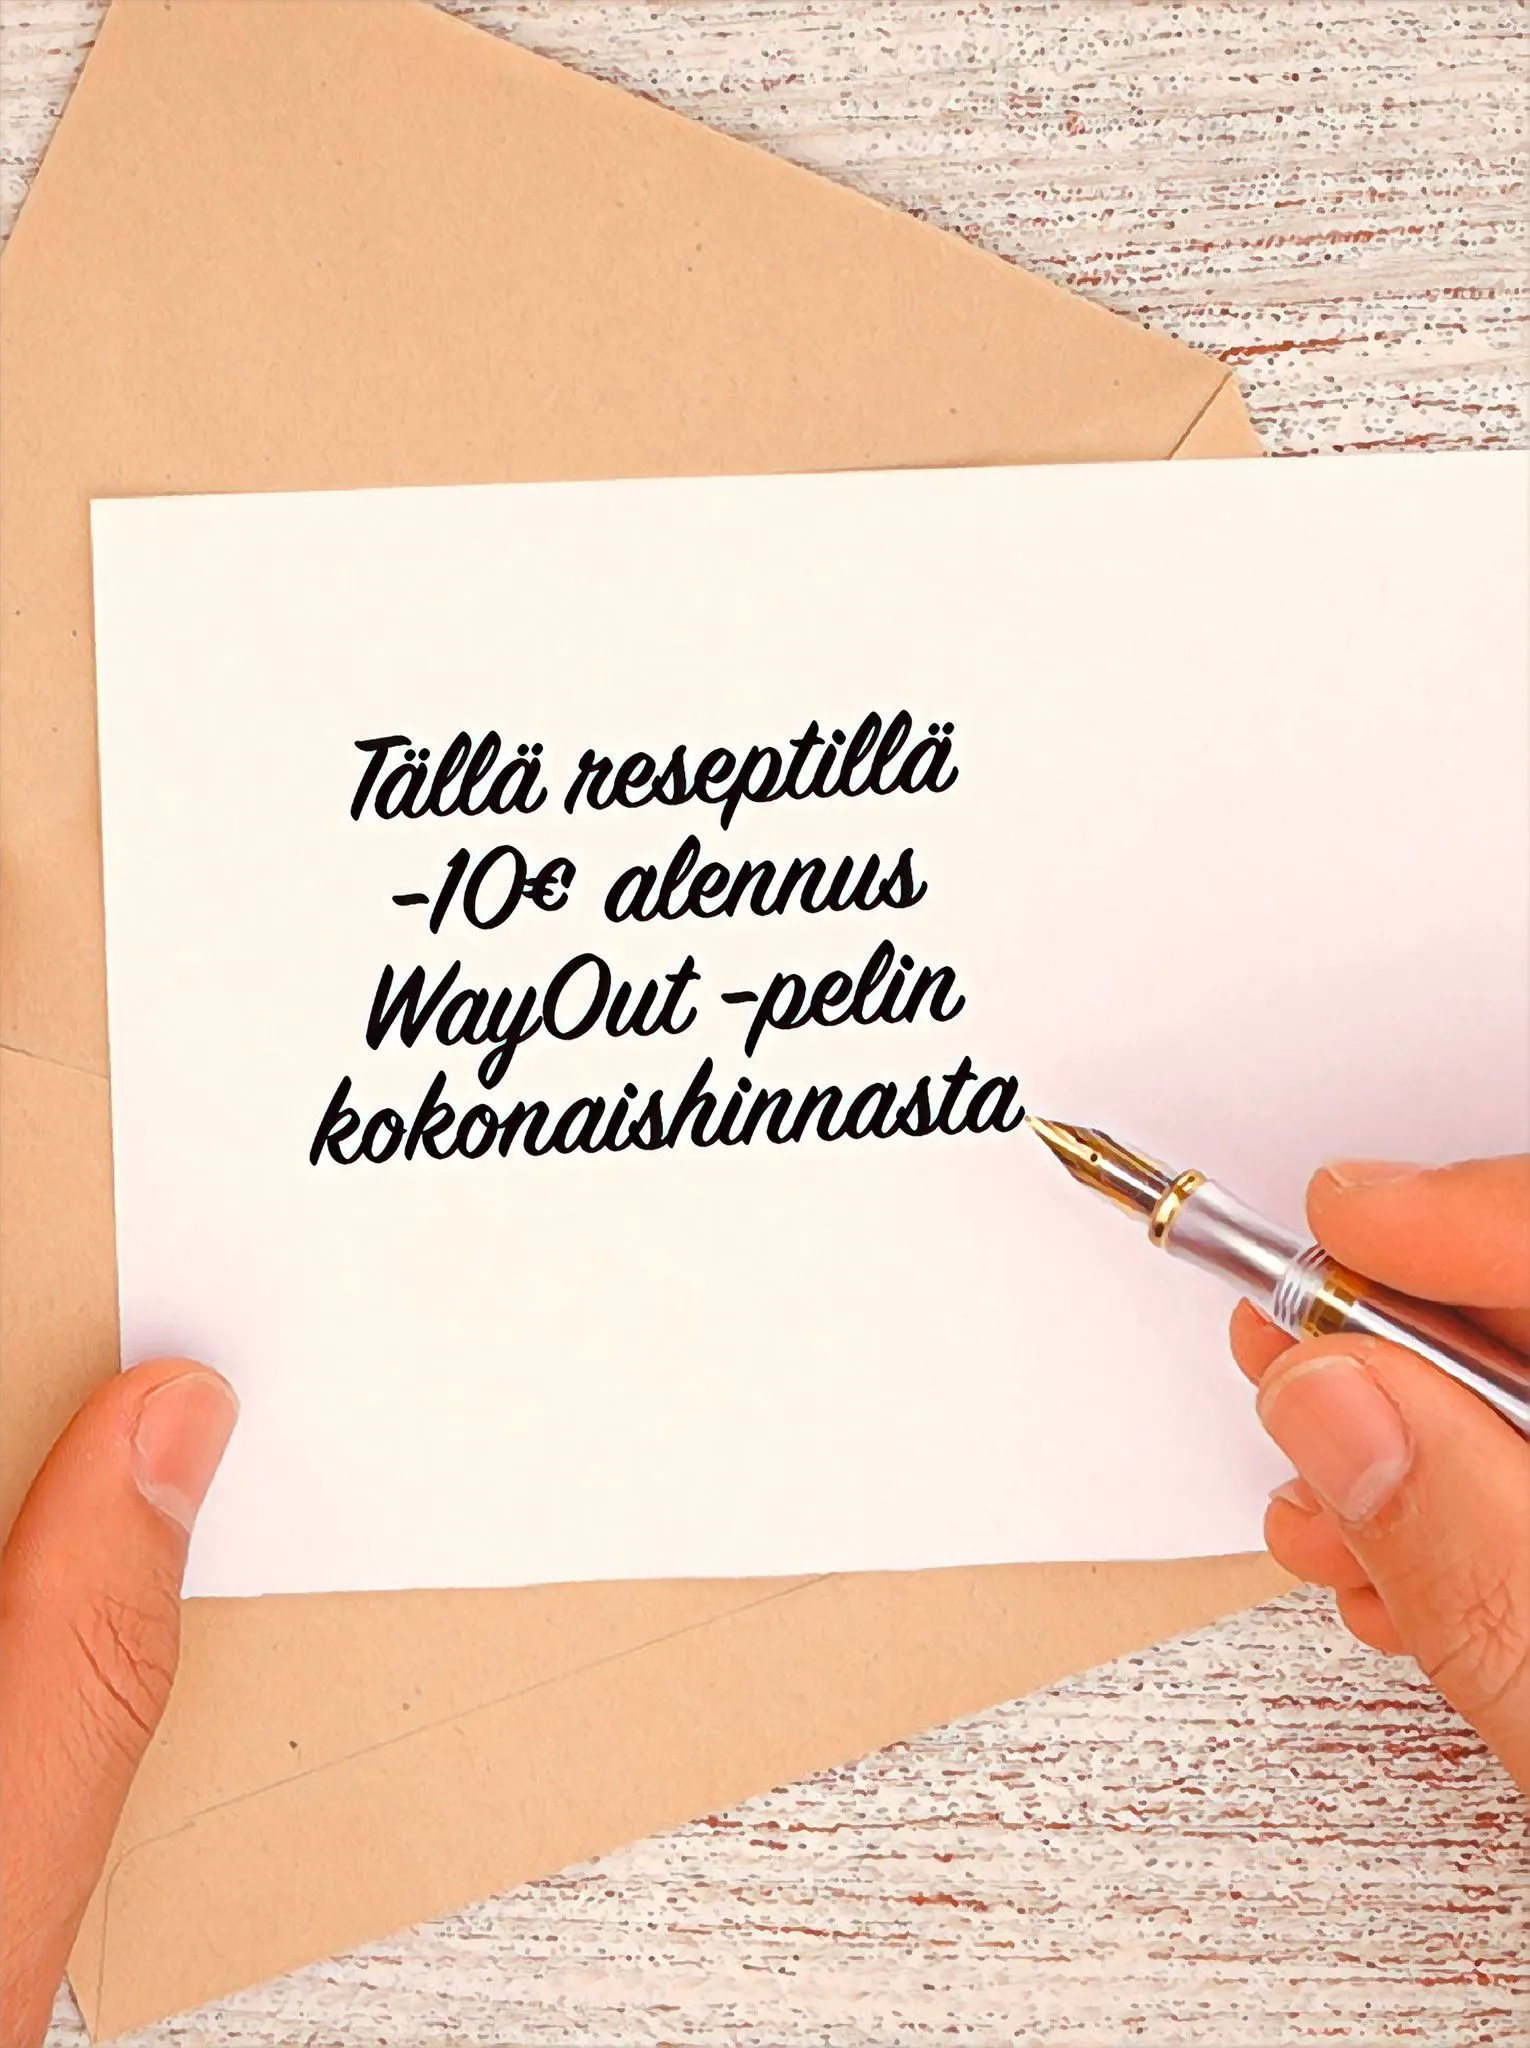 Tällä reseptillä
-10€ alennus
WayOut -pelin
kokonaishinnasta